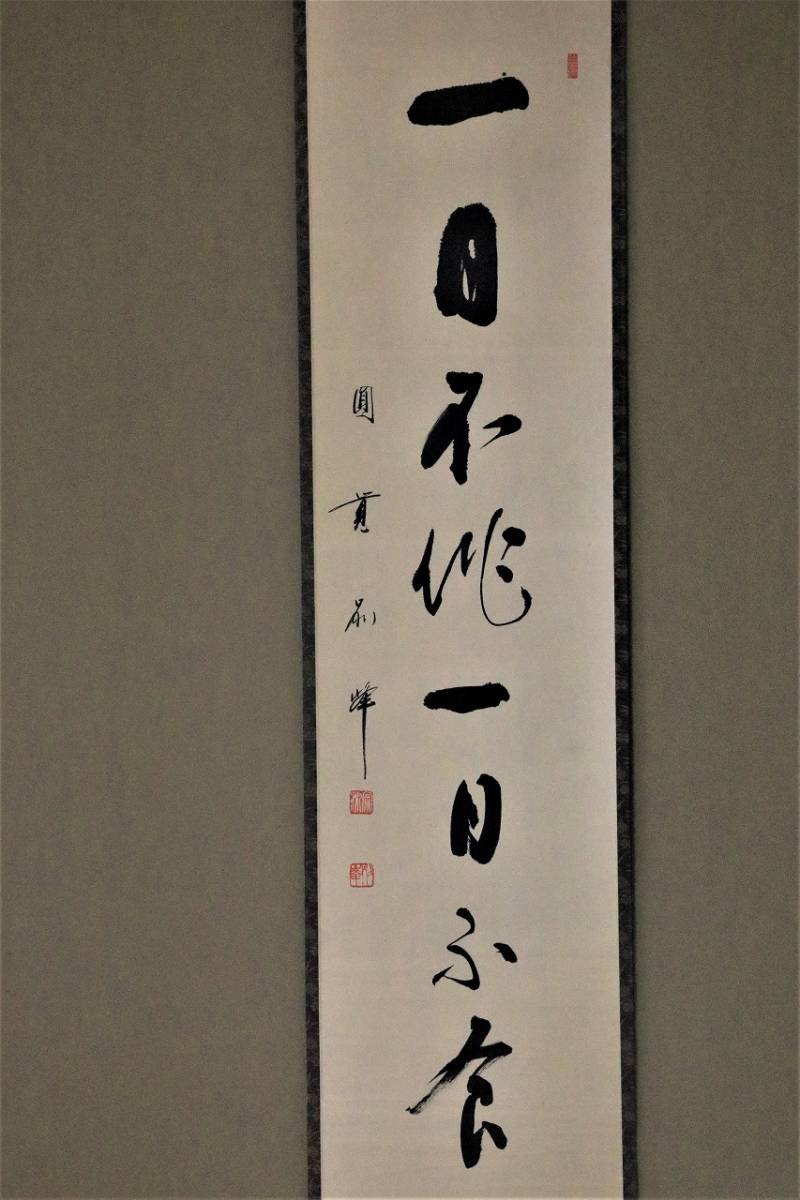 一日不作一日不食
圓覚別峰